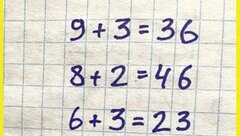 9+3=36
8+2=46
6+3=23